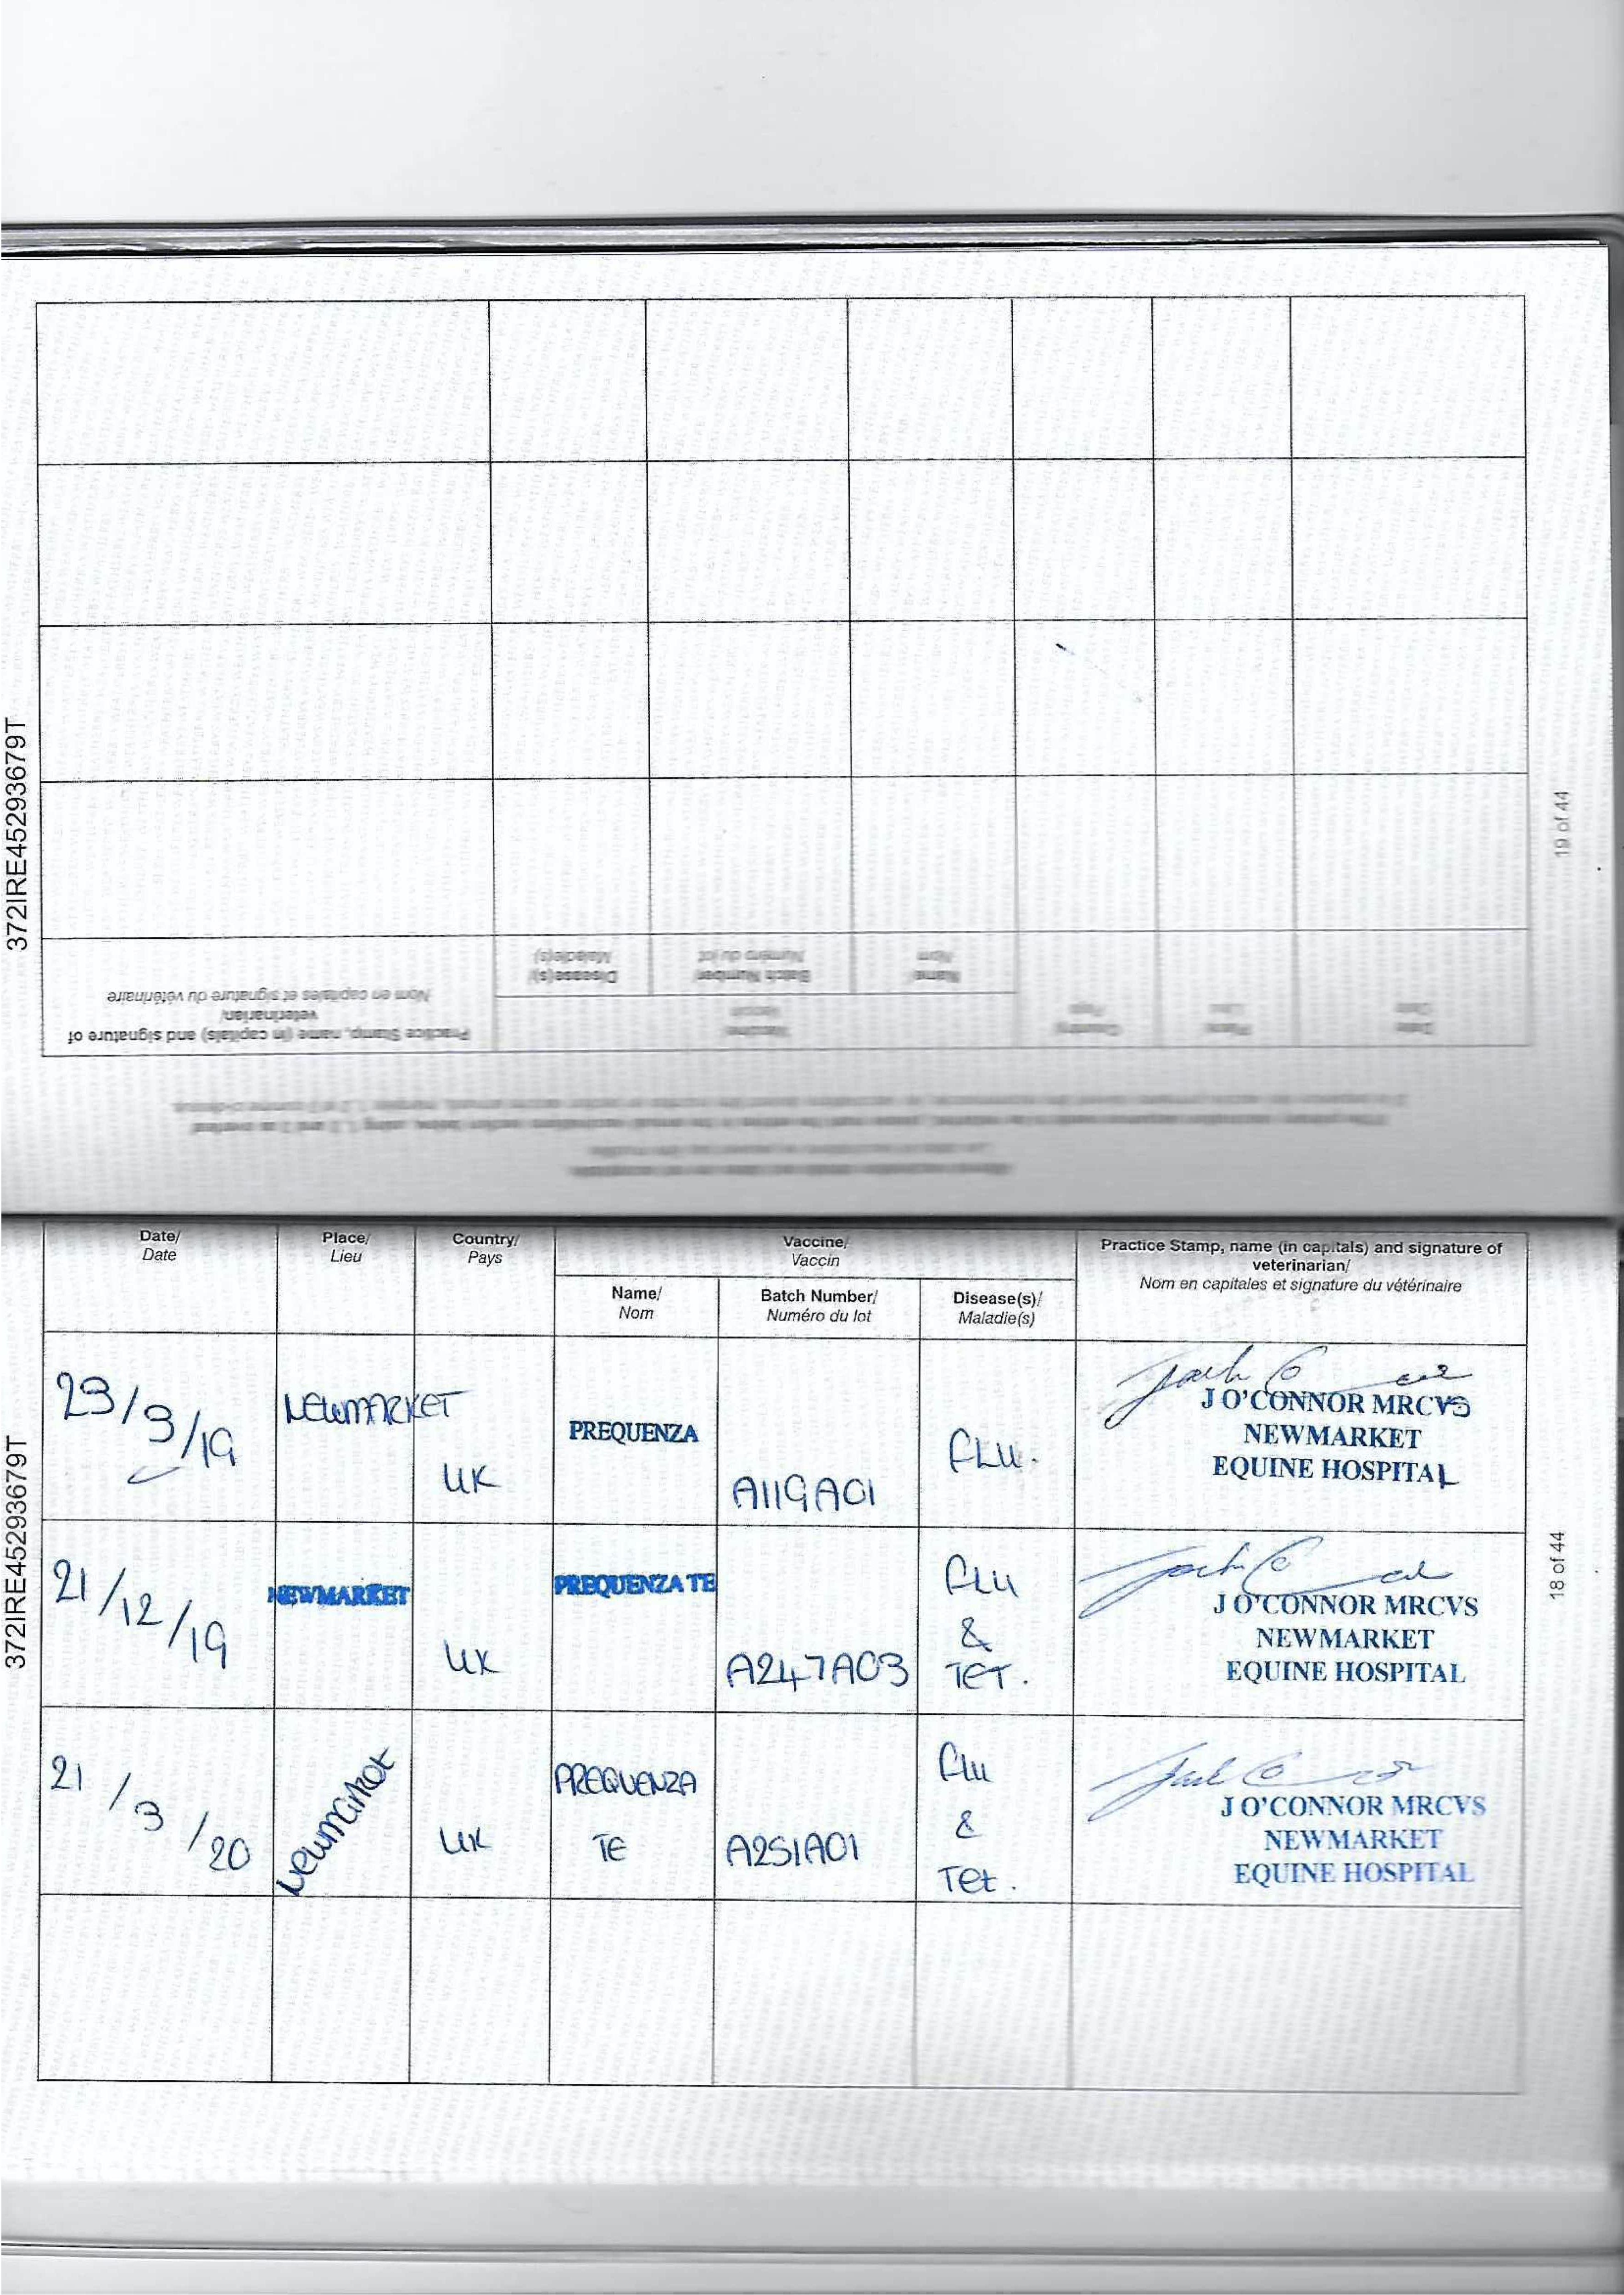 372IRE45293679T
19 of 44
Name/
Nom
Batch Number/
Numéro du lot
Disease(s)/
Maladie(s)
Practice Stamp, name (in capitals) and signature of
veterinarian/
Nom en capitales et signature du vétérinaire
372IRE45293679T
18 of 44
Date/
Date
Place/
Lieu
Country/
Pays
Vaccine/
Vaccin
Name/
Nom
Batch Number/
Numéro du lot
Disease(s)/
Maladie(s)
Practice Stamp, name (in capitals) and signature of
veterinarian/
Nom en capitales et signature du vétérinaire
23/3/19
NEWMARKET
UK
PREQUENZA
A119A01
FLU.
J O'CONNOR MRCVS
NEWMARKET
EQUINE HOSPITAL
21/12/19
NEWMARKET
UK
PREQUENZA TE
A247A03
FLU
&
TET.
J O'CONNOR MRCVS
NEWMARKET
EQUINE HOSPITAL
21/3/20
Newmarket
UK
PREQUENZA
TE
A251A01
Flu
&
Tet.
J O'CONNOR MRCVS
NEWMARKET
EQUINE HOSPITAL